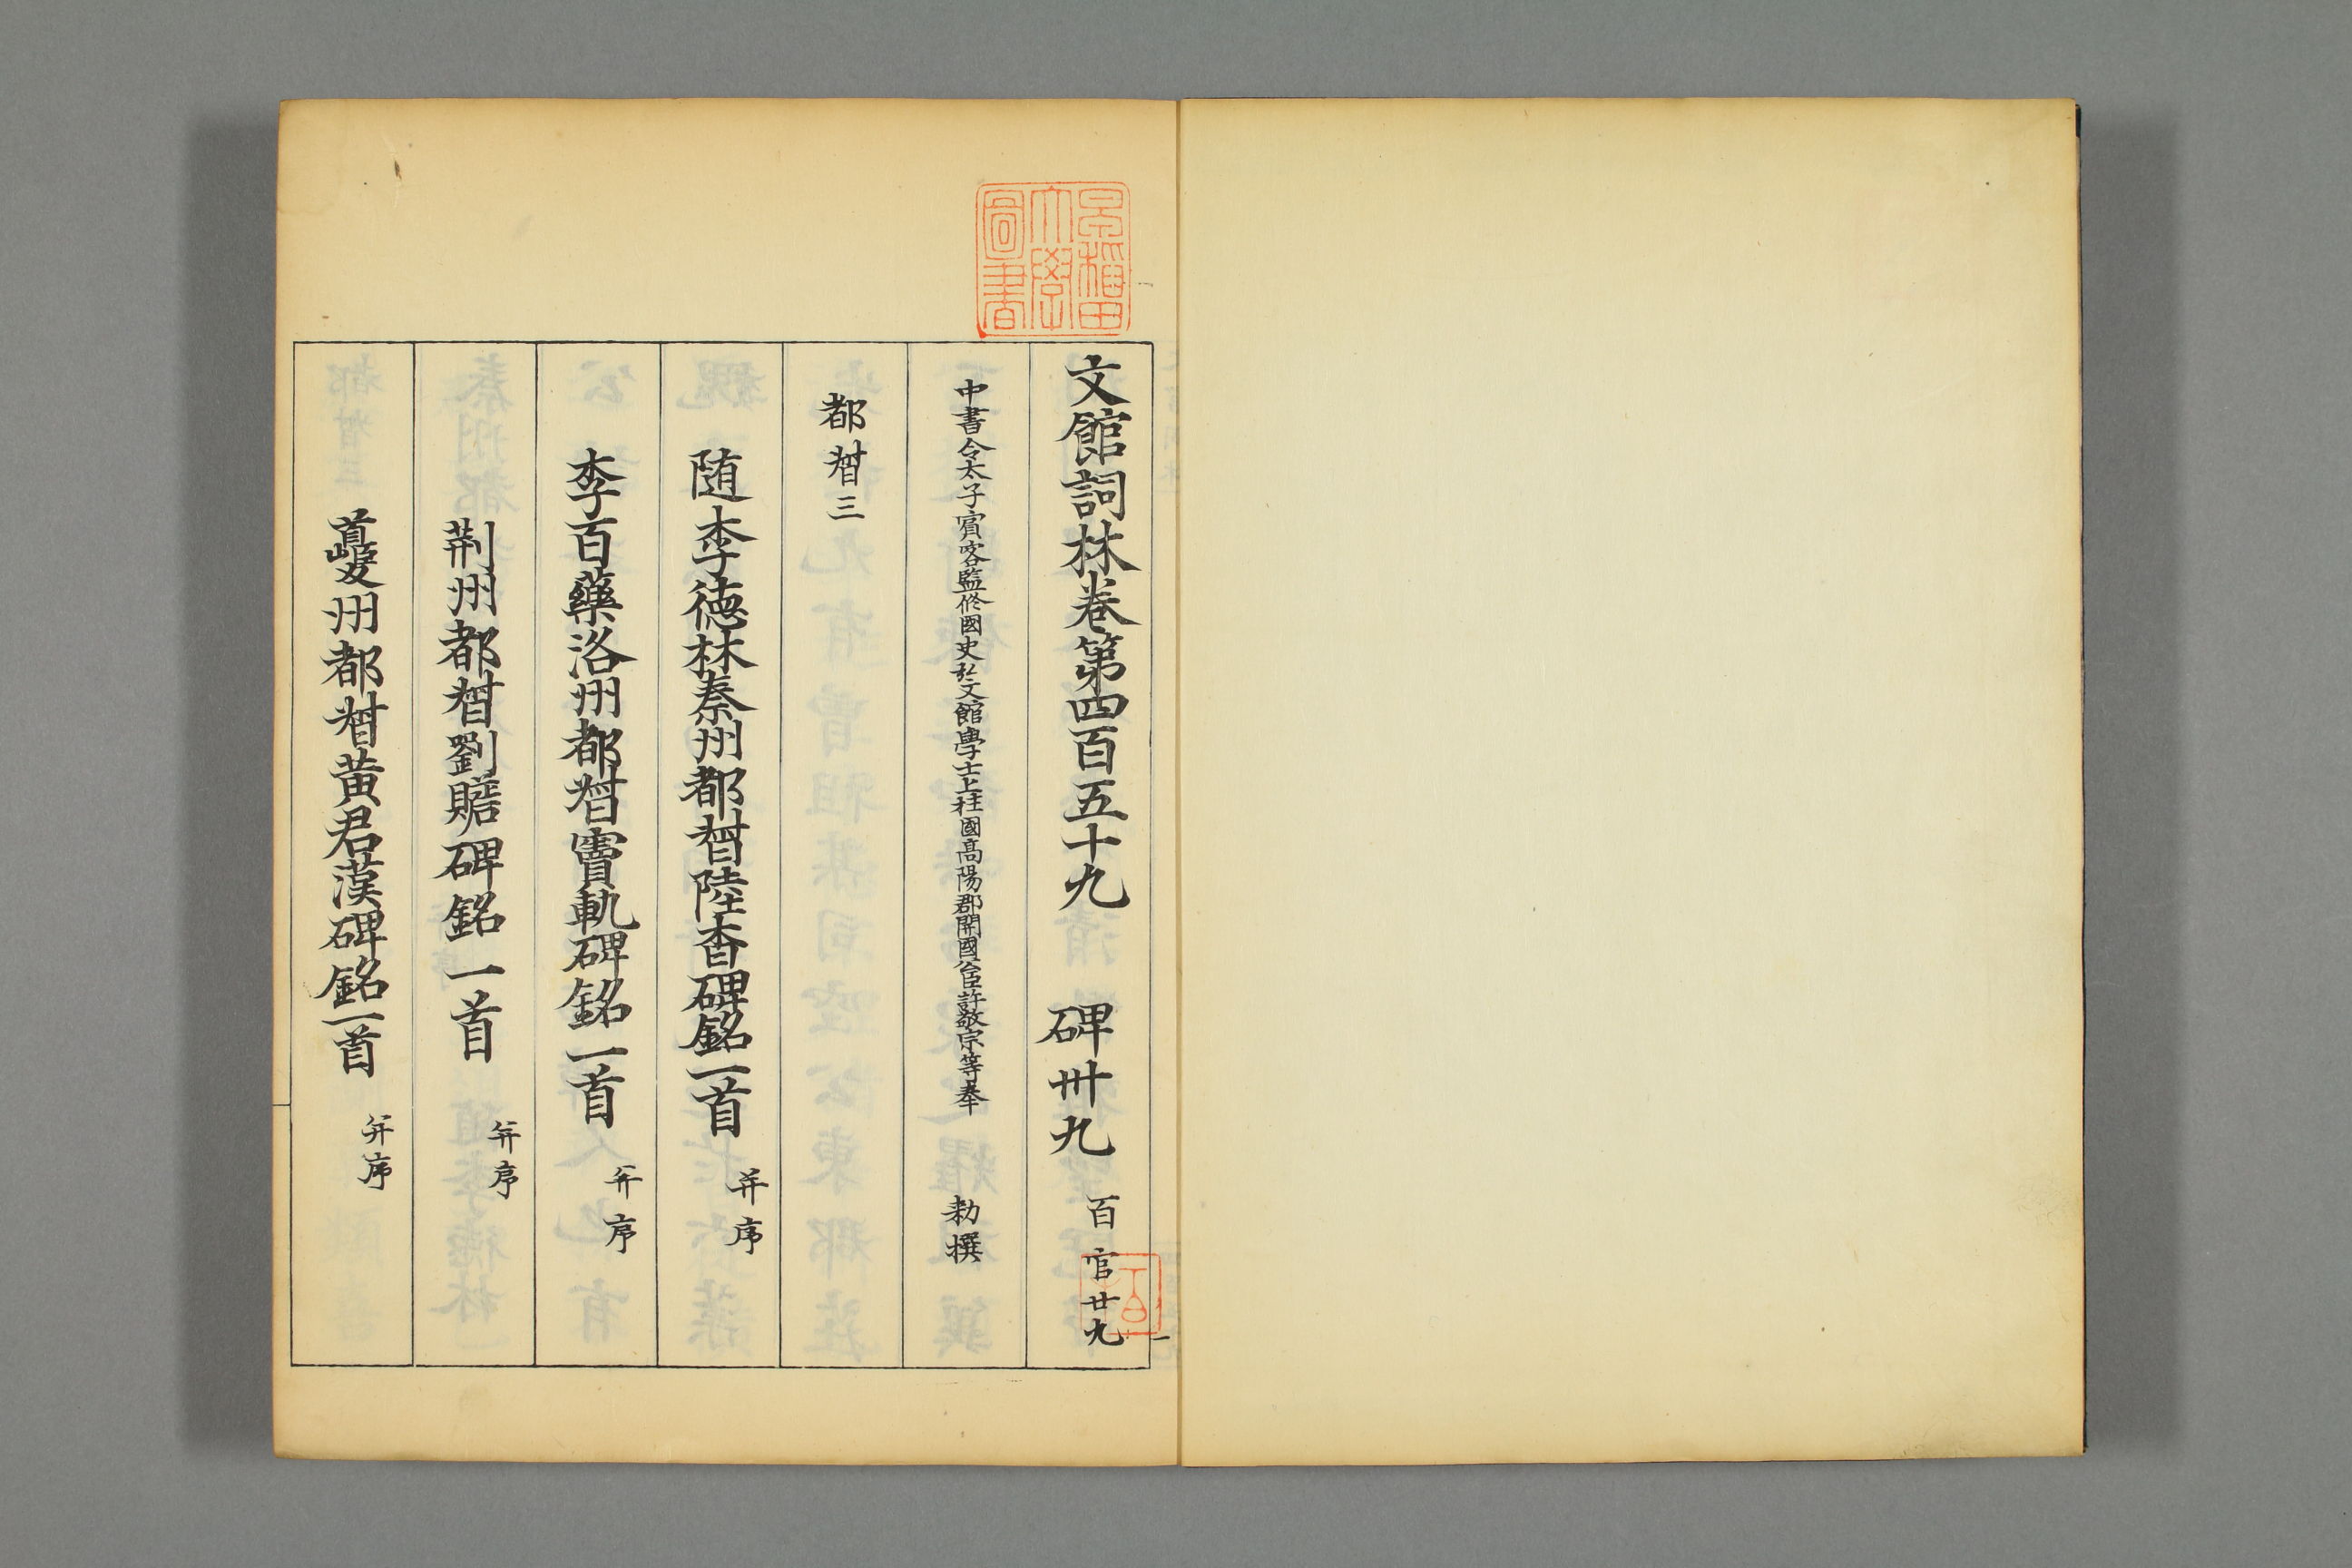 文館詞林卷第四百五十九 碑卅九 百官廿九
中書令太子賓客監修國史弘文館學士上柱國高陽郡開國公臣許敬宗等奉 勅撰
都督三
随李德林秦州都督陸杳碑銘一首 并序
李百藥洛州都督竇軌碑銘一首 并序
荆州都督劉瞻碑銘一首 并序
夔州都督黄君漢碑銘一首 并序
早稲田大學圖書
一